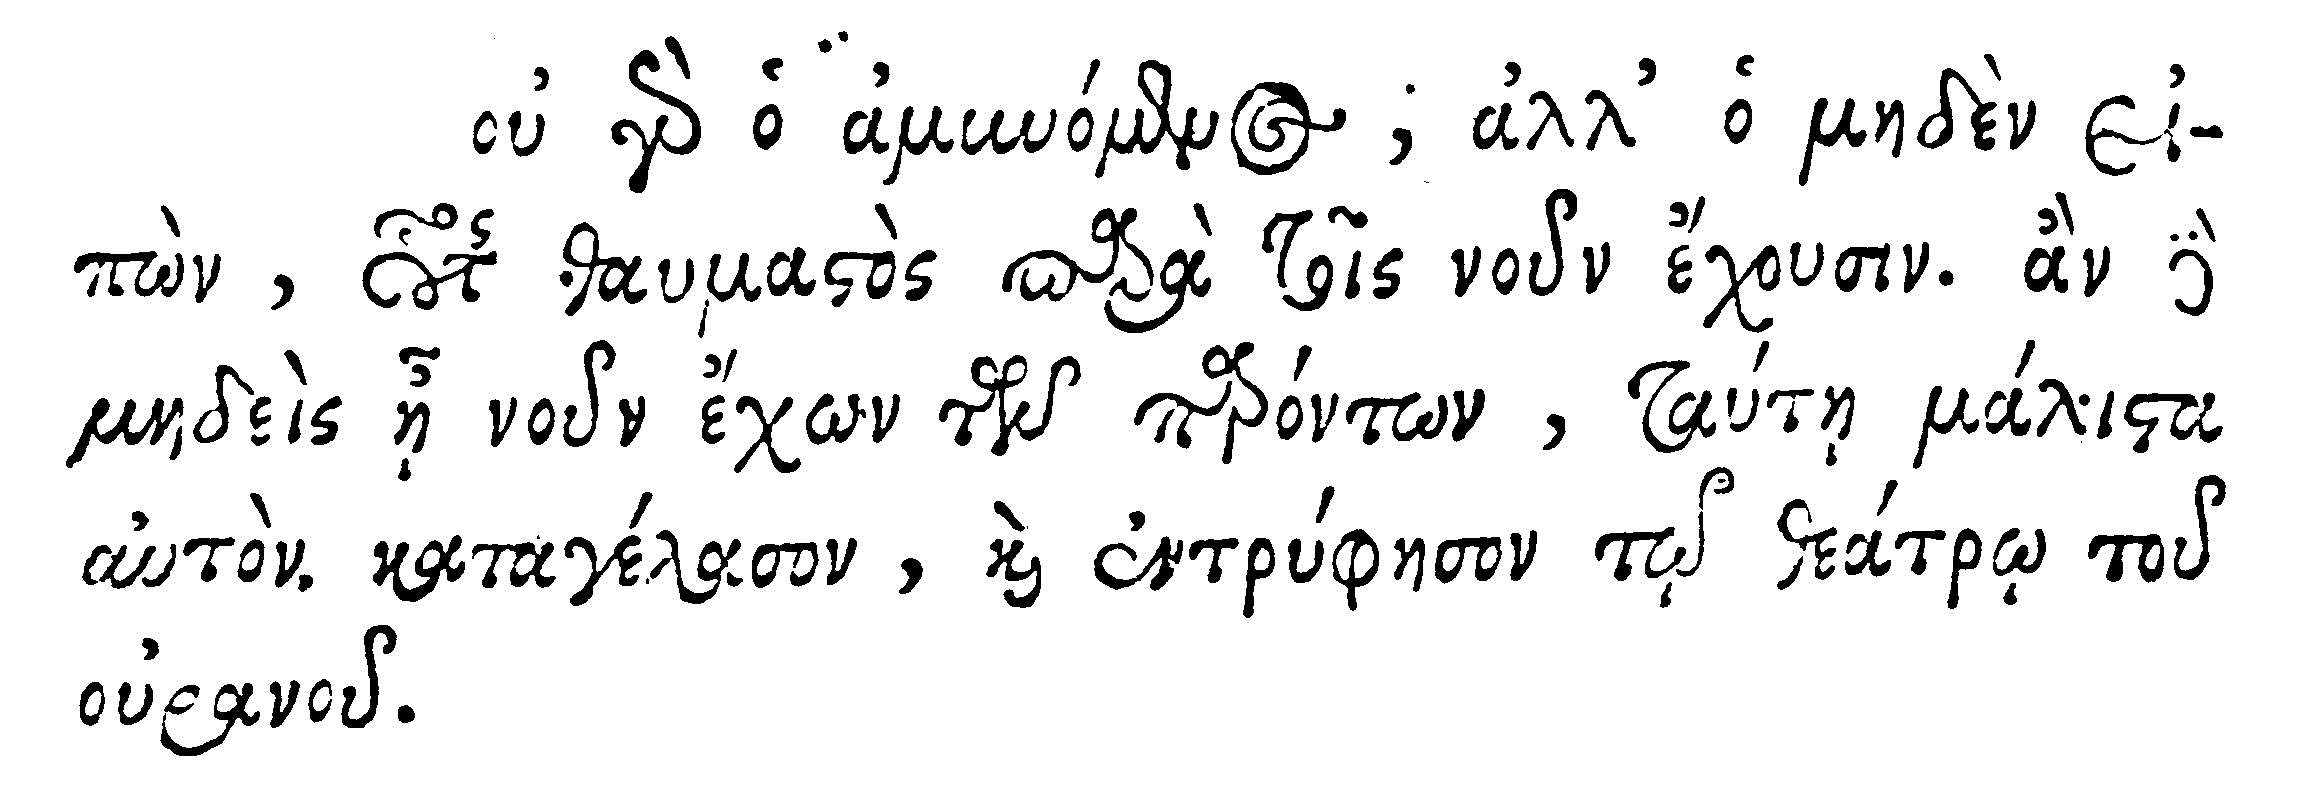 οὐ γὰρ ὁ ἀμυνόμενος; ἀλλ’ ὁ μηδὲν εἰ-
πὼν, οὗτος θαυμαστὸς παρὰ τοῖς νοῦν ἔχουσιν. ἂν δὲ
μηδεὶς ᾖ νοῦν ἔχων τῶν παρόντων, ταύτῃ μάλιστα
αὐτὸν. καταγέλασον, καὶ ἐντρύφησον τῷ θεάτρῳ τοῦ
οὐρανοῦ.